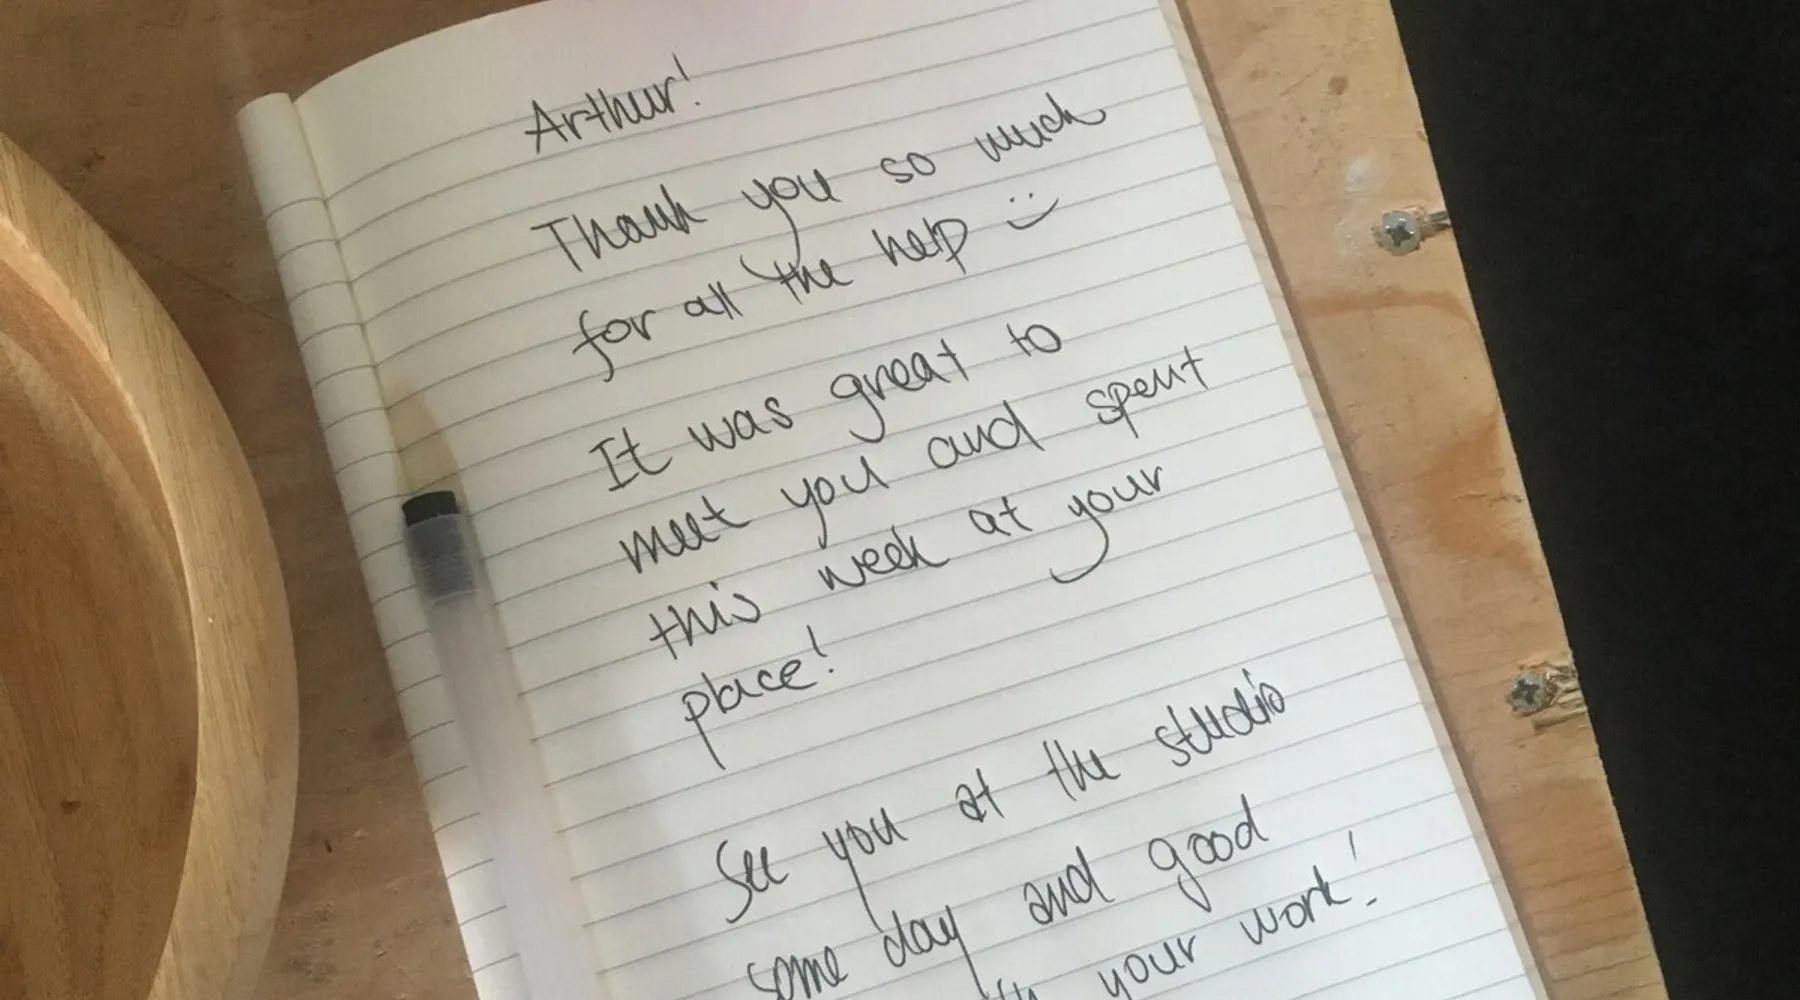 Arthur!
Thank you so much
for all the help :)
It was great to
meet you and spent
this week at your
place!
See you at the studio
some day and good
your work!